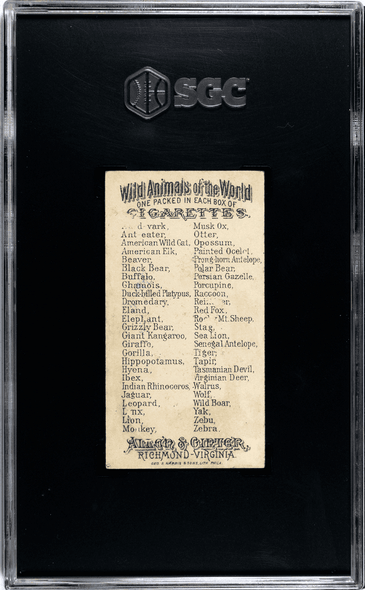 SGC
Wild Animals of the World
ONE PACKED IN EACH BOX OF
CIGARETTES.
vark, Musk Ox,
Ant eater, Otter,
American Wild Cat, Opossum,
American Elk, Painted Ocelot,
Beaver, Prong-horn Antelope,
Black Bear, Polar Bear,
Buffalo, Persian Gazelle,
Chamois, Porcupine,
Duck-billed Platypus, Raccoon,
Dromedary,
Eland, Red Fox,
Elephant, Mt. Sheep,
Grizzly Bear, Stag,
Giant Kangaroo, Sea Lion,
Giraffe, Senegal Antelope,
Gorilla, Tiger,
Hippopotamus, Tapir,
Hyena, Tasmanian Devil,
Ibex, Virginian Deer,
Indian Rhinoceros, Walrus,
Jaguar, Wolf,
Leopard, Wild Boar,
L nx, Yak,
Lion, Zebu,
Mo key, Zebra.
ALLEN & GINTER,
RICHMOND-VIRGINIA.
GEO. S. HARRIS & SONS LITH. PHILA.